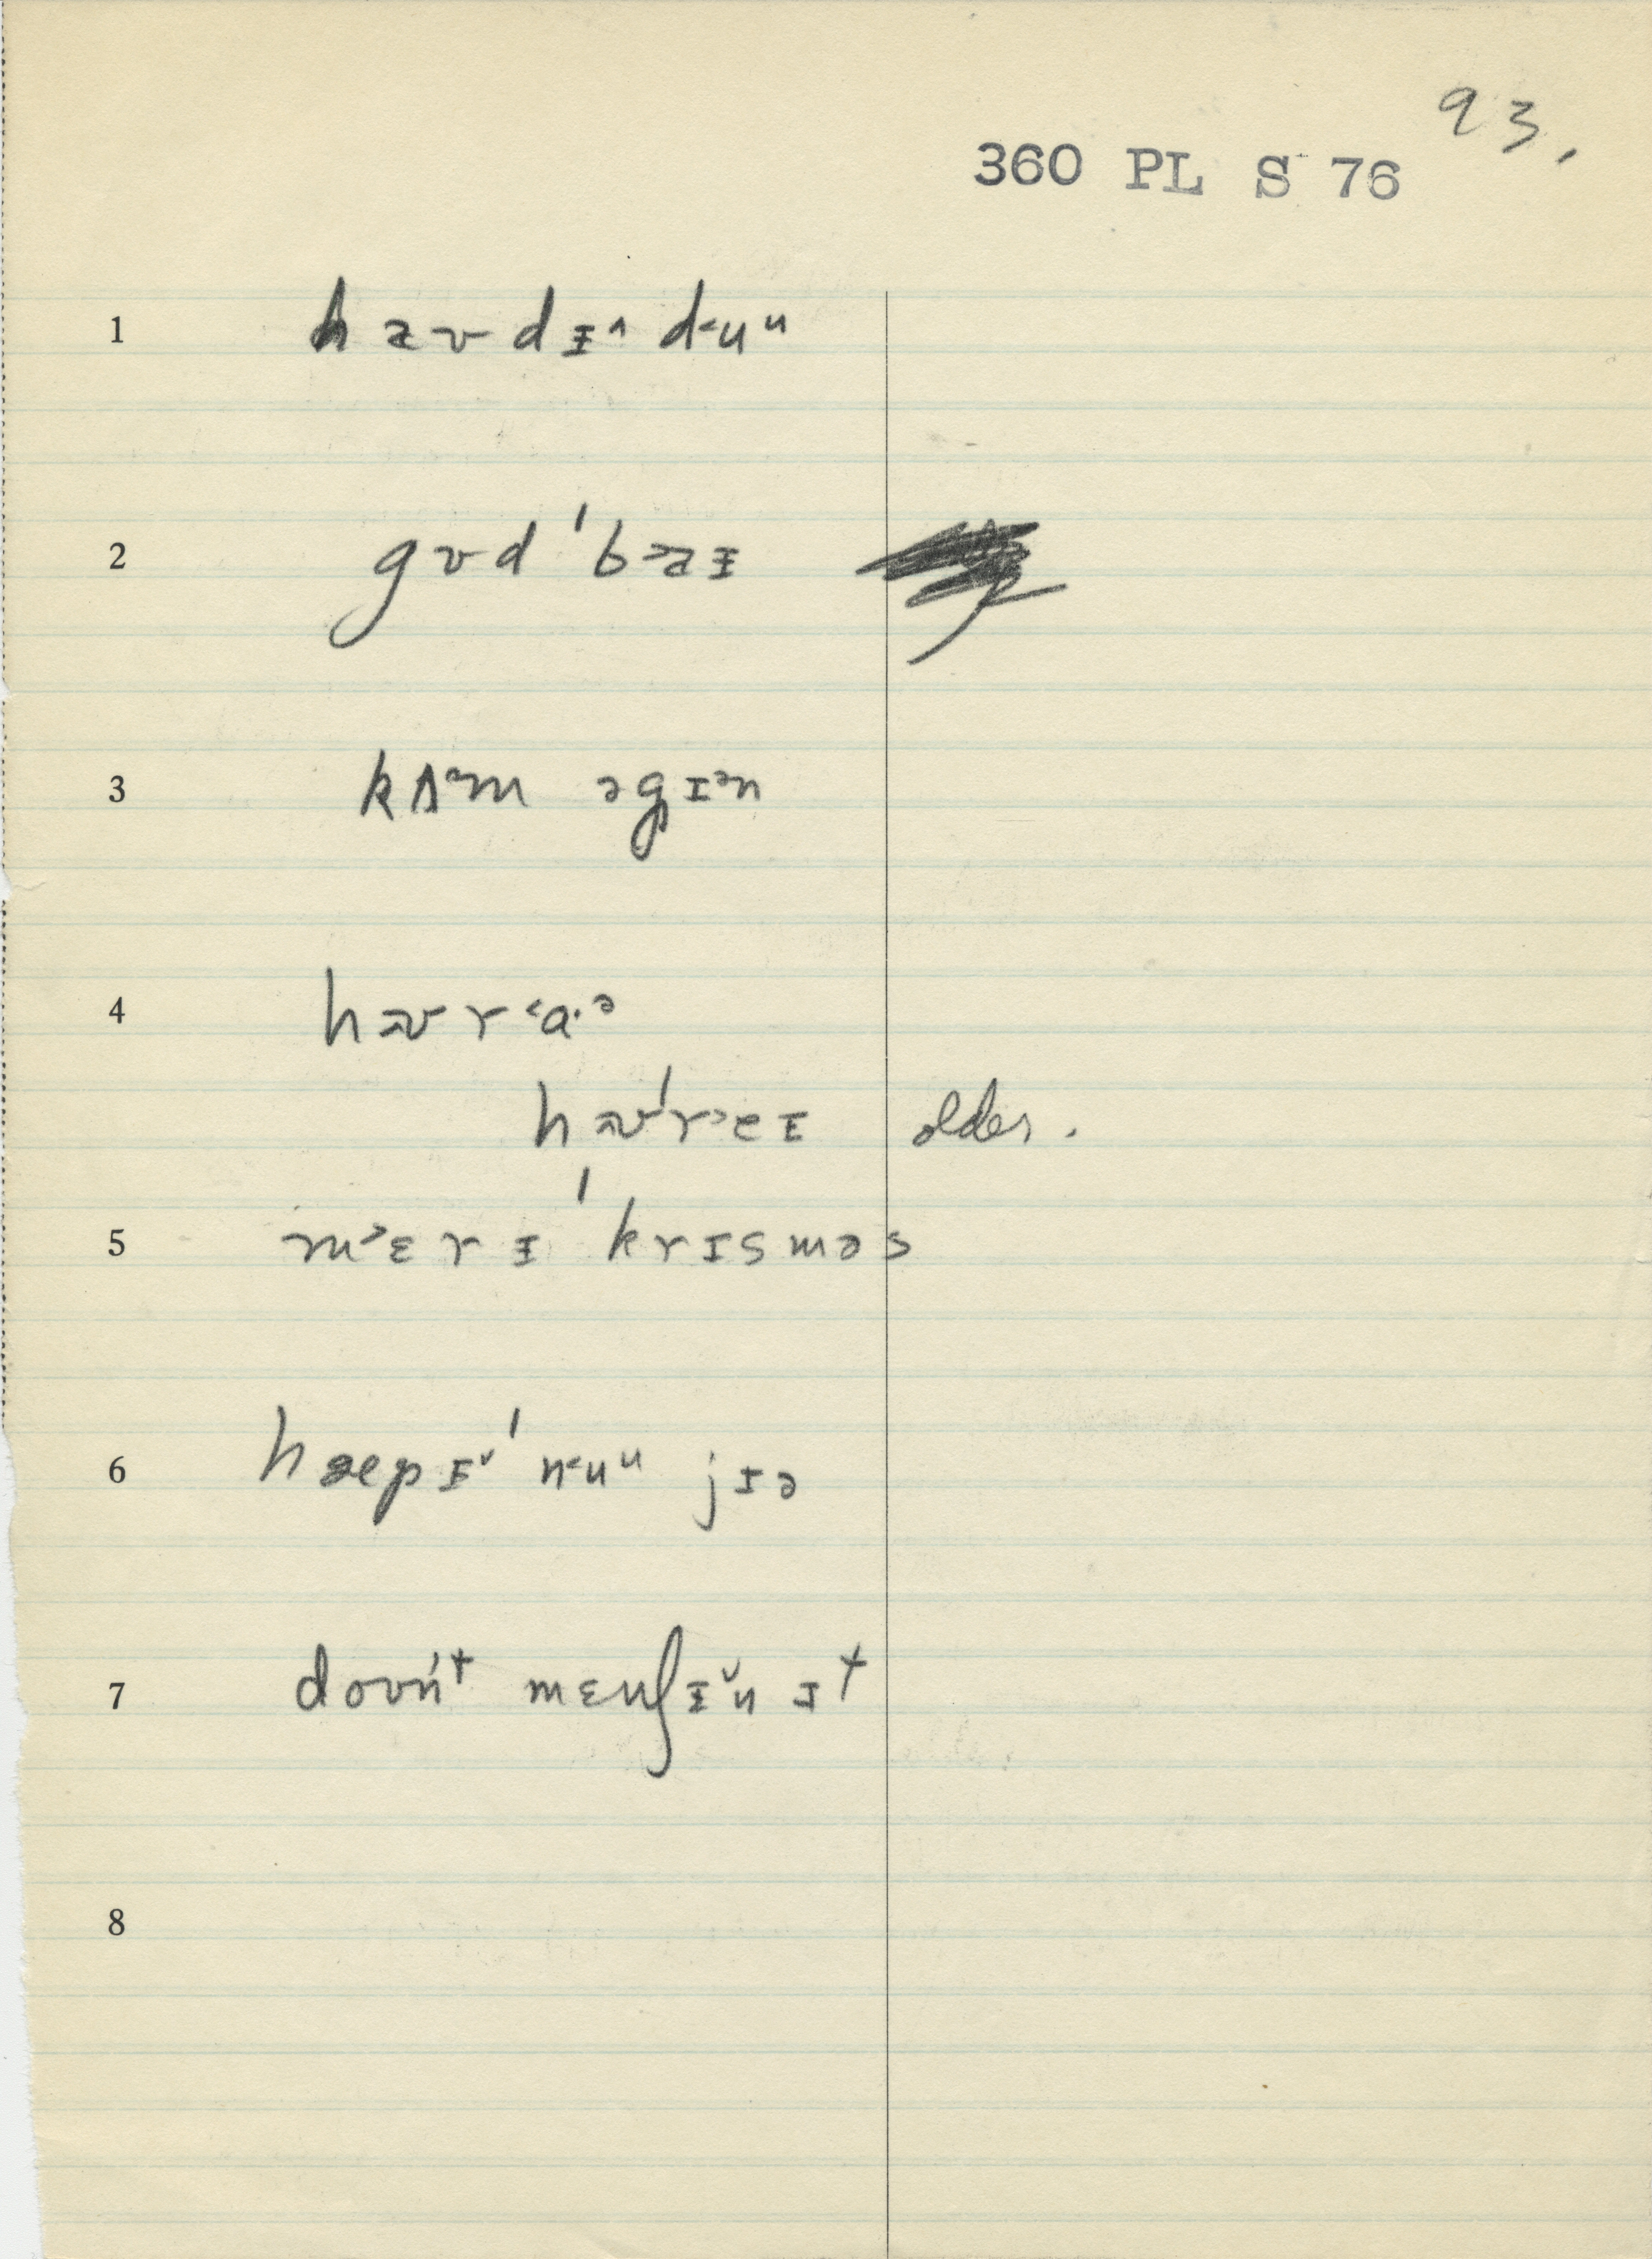 93.
360 PL S 76
1 haʊdɨ^ d˂uᵘ
2 gʊd ˈb˃aɨ
3 kʌᵊm əgɪᵊn
4 haʊ r˂ɑ·ᵊ
haʊˈr˃eɪ older.
5 m˃ɛrɨ ˈkrɪsməs
6 hæpɨˇ ˈn˂uᵘ jɪə
7 doʊńᵗ mɛnʃɨˇn ɪᵗ
8